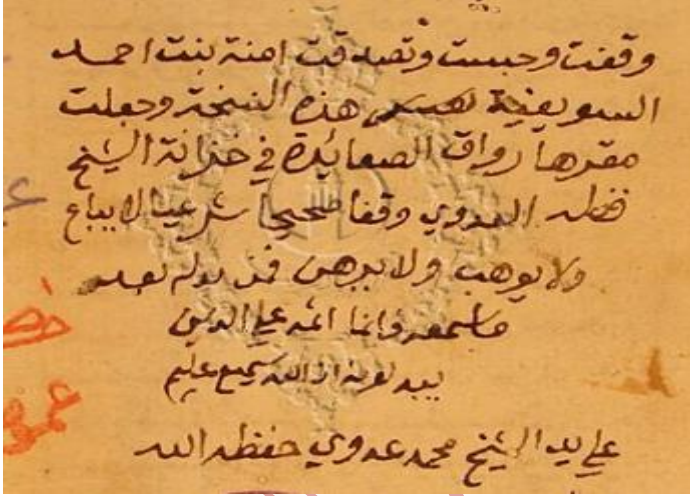 وقفت وحبست وتصدقت امنة بنت احمد
السويفية هذه النسخة وجعلت
مقرها رواق الصعايدة في خزانة الشيخ
العدوي وقفا صحيحا شرعيا لا يباع
ولا يوهب ولا يرهن فمن بدله بعد
ما سمعه فانما اثمه علي الذين
يبدلونه ان الله سميع عليم
علي يد الشيخ محمد عدوي حفظه الله